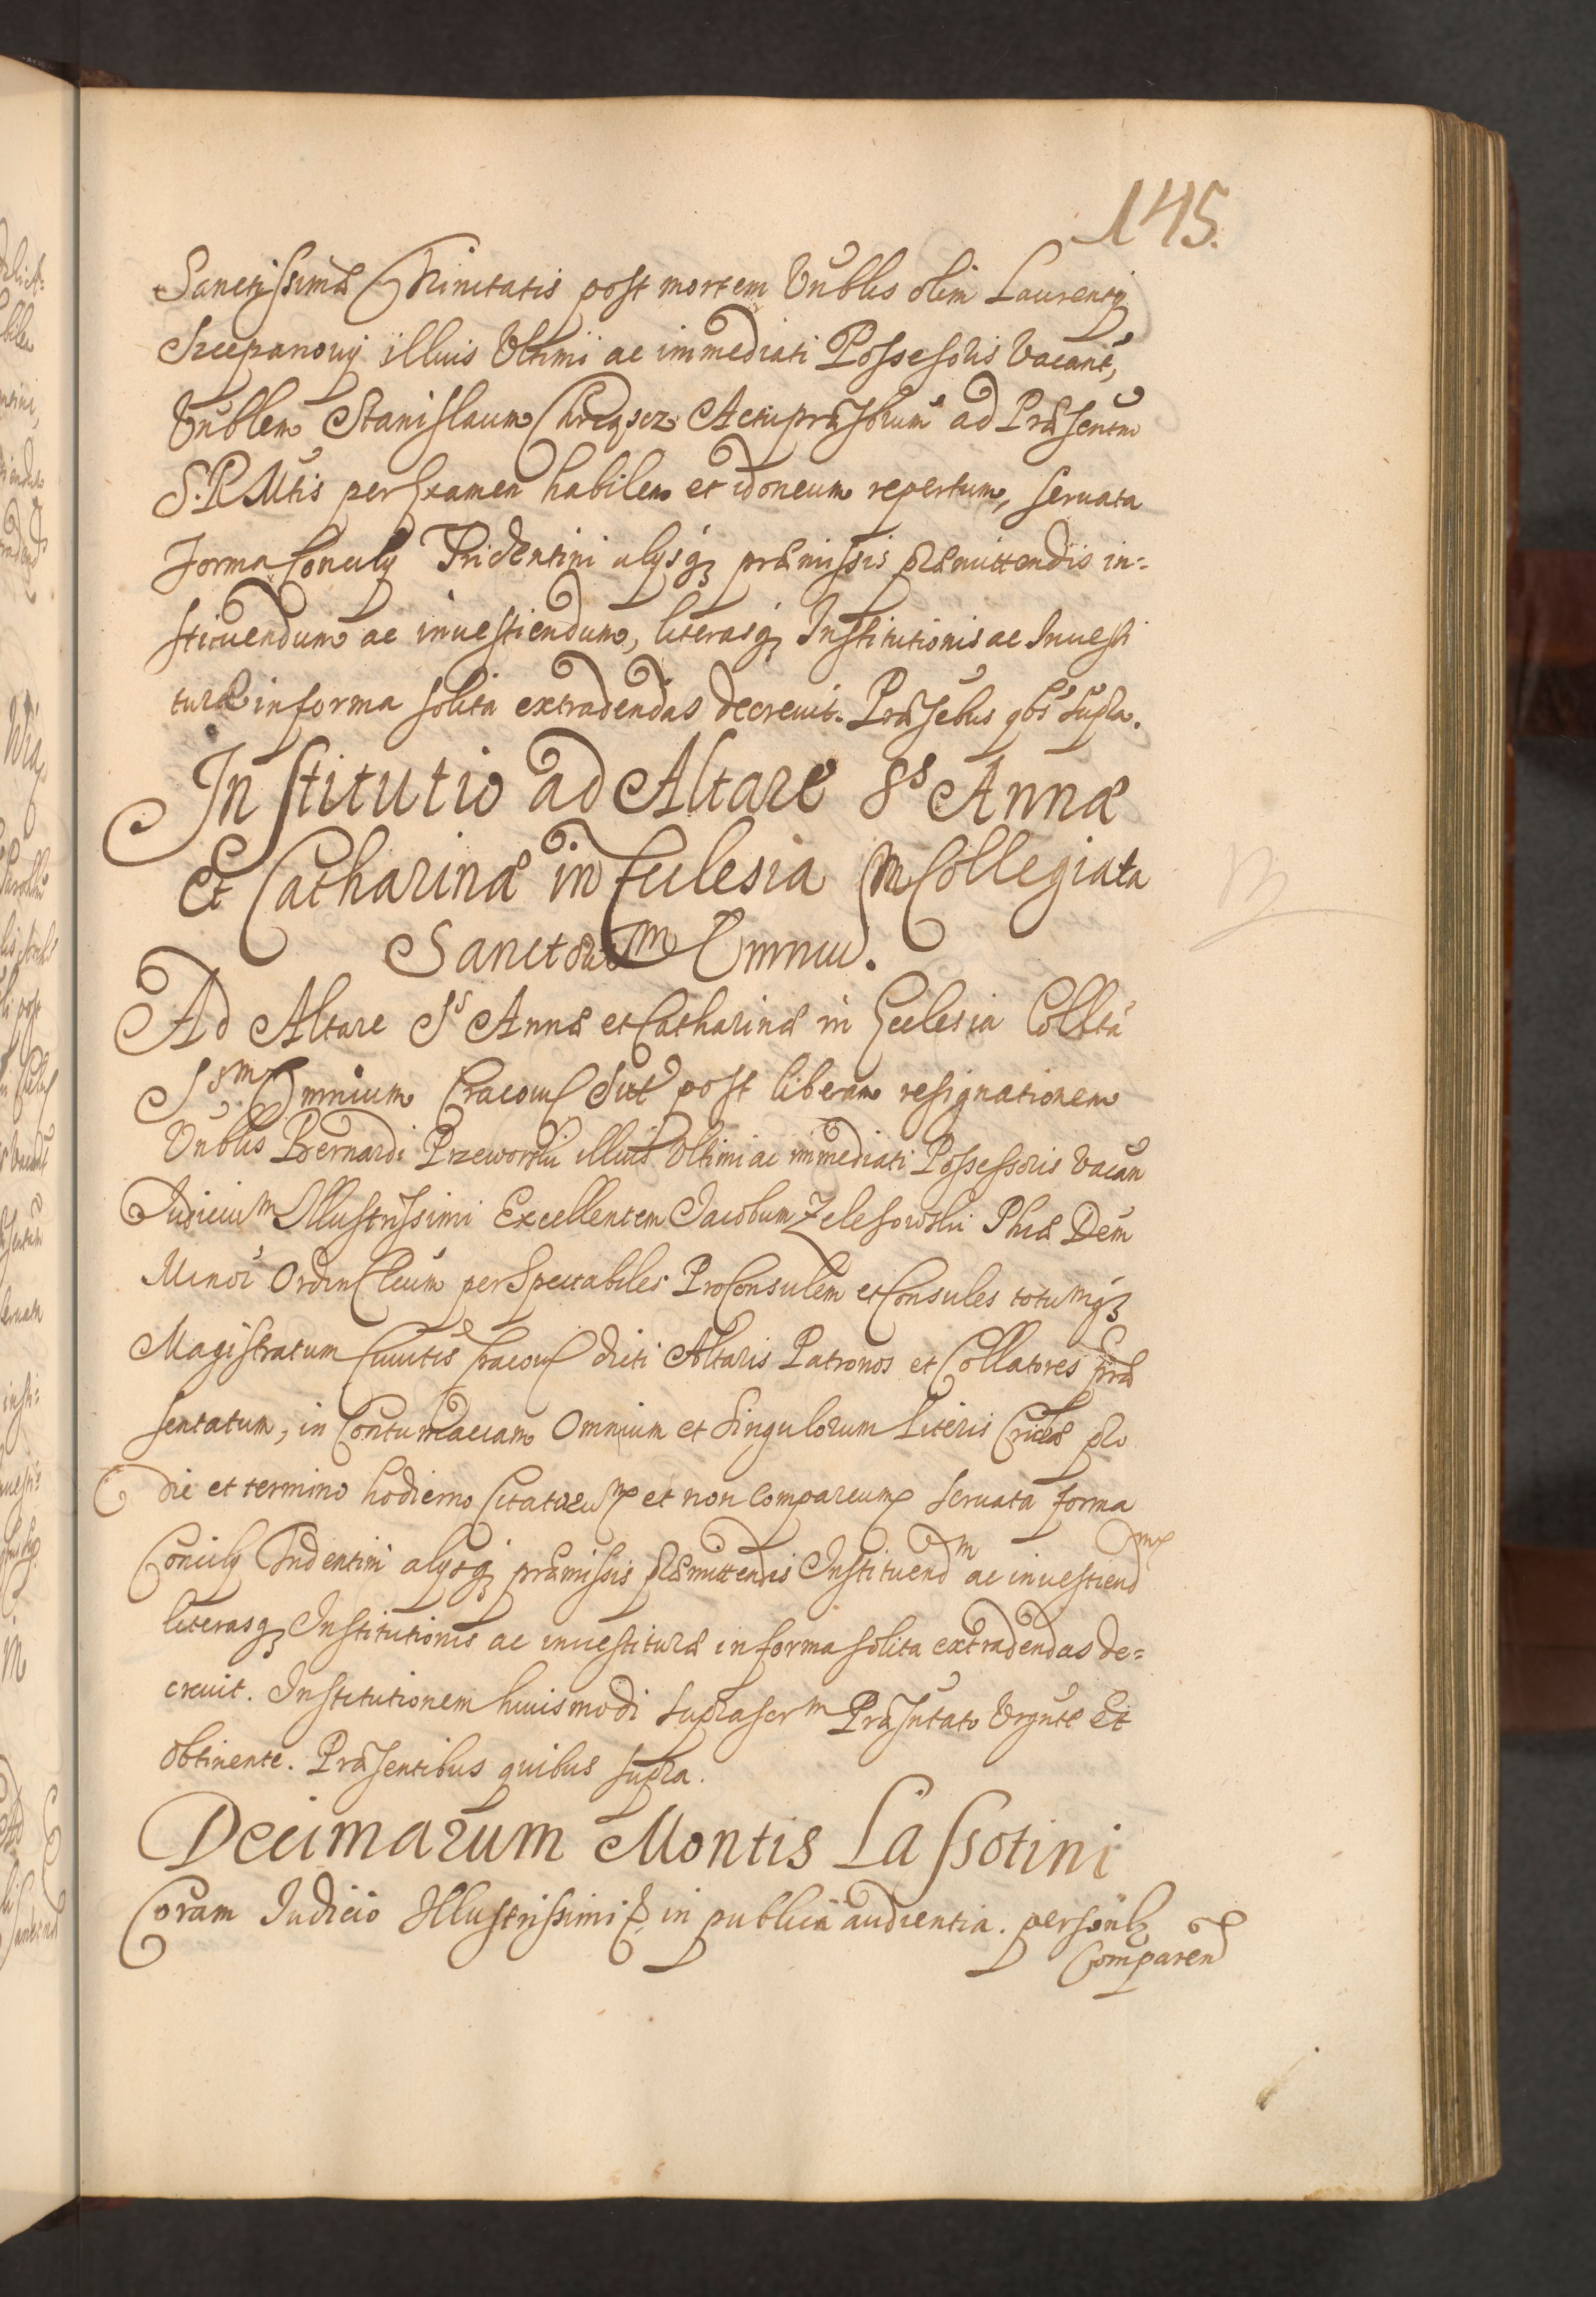 145.
Sanctissimæ Trinitatis post mortem Vnblis olim Laurentij
Szczepanowij illius Vltimi ac immediati Possessoris Vacant,
Vnblem Stanislaum Actupræsbrum ad Præsentm
S. R. Mtis per Examen habilem et idoneum repertum, seruata
forma Concilij Tridentini alijsq₃ præmissis præmittendis in=
stituendum ac inuestiendum, literasq₃ Institutionis ac Inuesti
turæ in forma solita extradendas decreuit. Præsebus qbs supra.
Institutio ad Altare Ss Annæ
Et Catharinæ in Ecclesia Collegiata
Sanctorum Omniu.
Ad Altare Ss Annæ et Catharinæ in Ecclesia Collta
SSrm Omnium Cracou sitt post liberam resignationem
Vnblis Bernardi Przeworski illius Vltimi ac immediati Possessoris Vacan
Judicium Illustrissimi Excellentem Jacobum Zelesowski Phiæ Dem
Minor Ordin Cleum per Spectabiles ProConsulem et Consules totumq₃
Magistratum Ciuitis Cracou dicti Altaris Patronos et Collatores præ
sentatum, in Contumaciam Omnium et Singulorum Literis Cridæ pro
die et termino hodierno Citatorum et non Compareum seruata forma
Concilij Tridentini alijsq₃ præmissis præmittendis Instituendm ac inuestiendm
literasq₃ Institutionis ac inuestituræ in forma solita extradendas de=
creuit. Institutionem huiusmodi suprascrm Præsntato Vrgnte Et
obtinente. Præsentibus quibus supra.
Decimarum Montis Lassotini
Coram Judicio Illustrissimi in publica audientia. personlr
Comparen